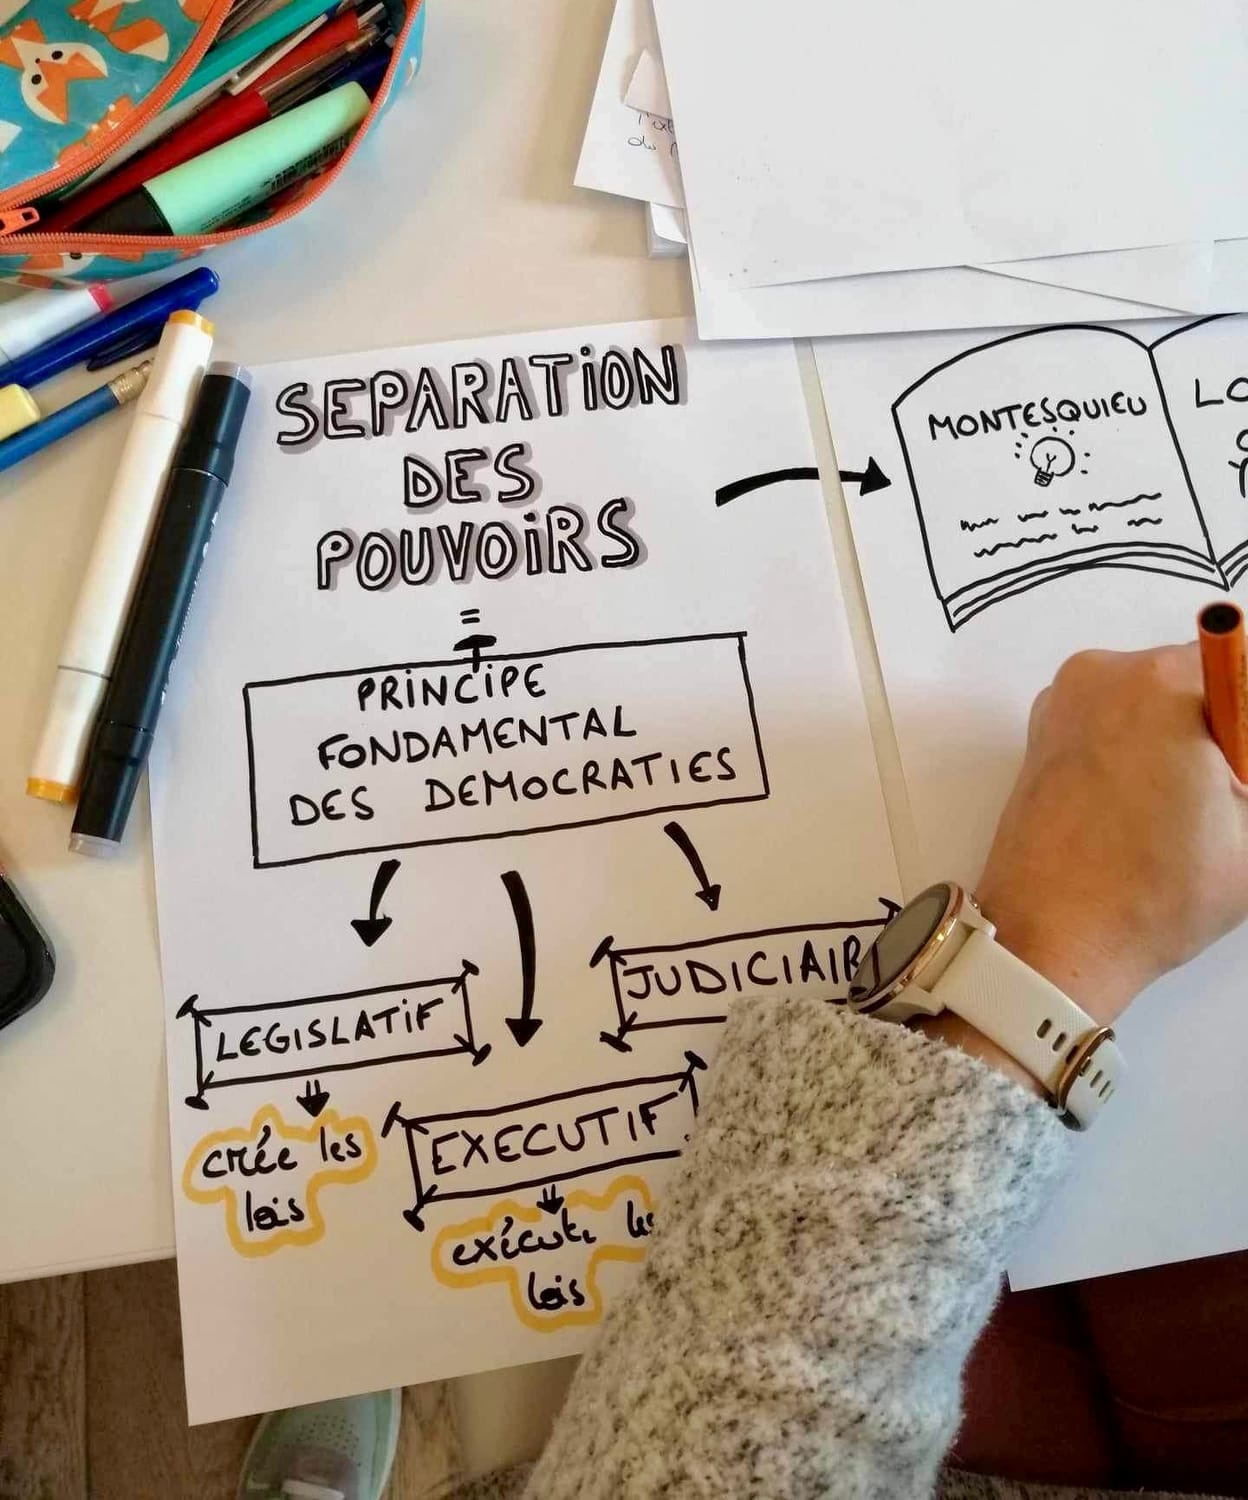 SEPARATION
DES
POUVOIRS
=
PRINCIPE
FONDAMENTAL
DES DEMOCRATIES
LEGISLATIF
crée les
lois
EXECUTIF
exécute les
lois
JUDICIAIR
MONTESQUIEU
LO